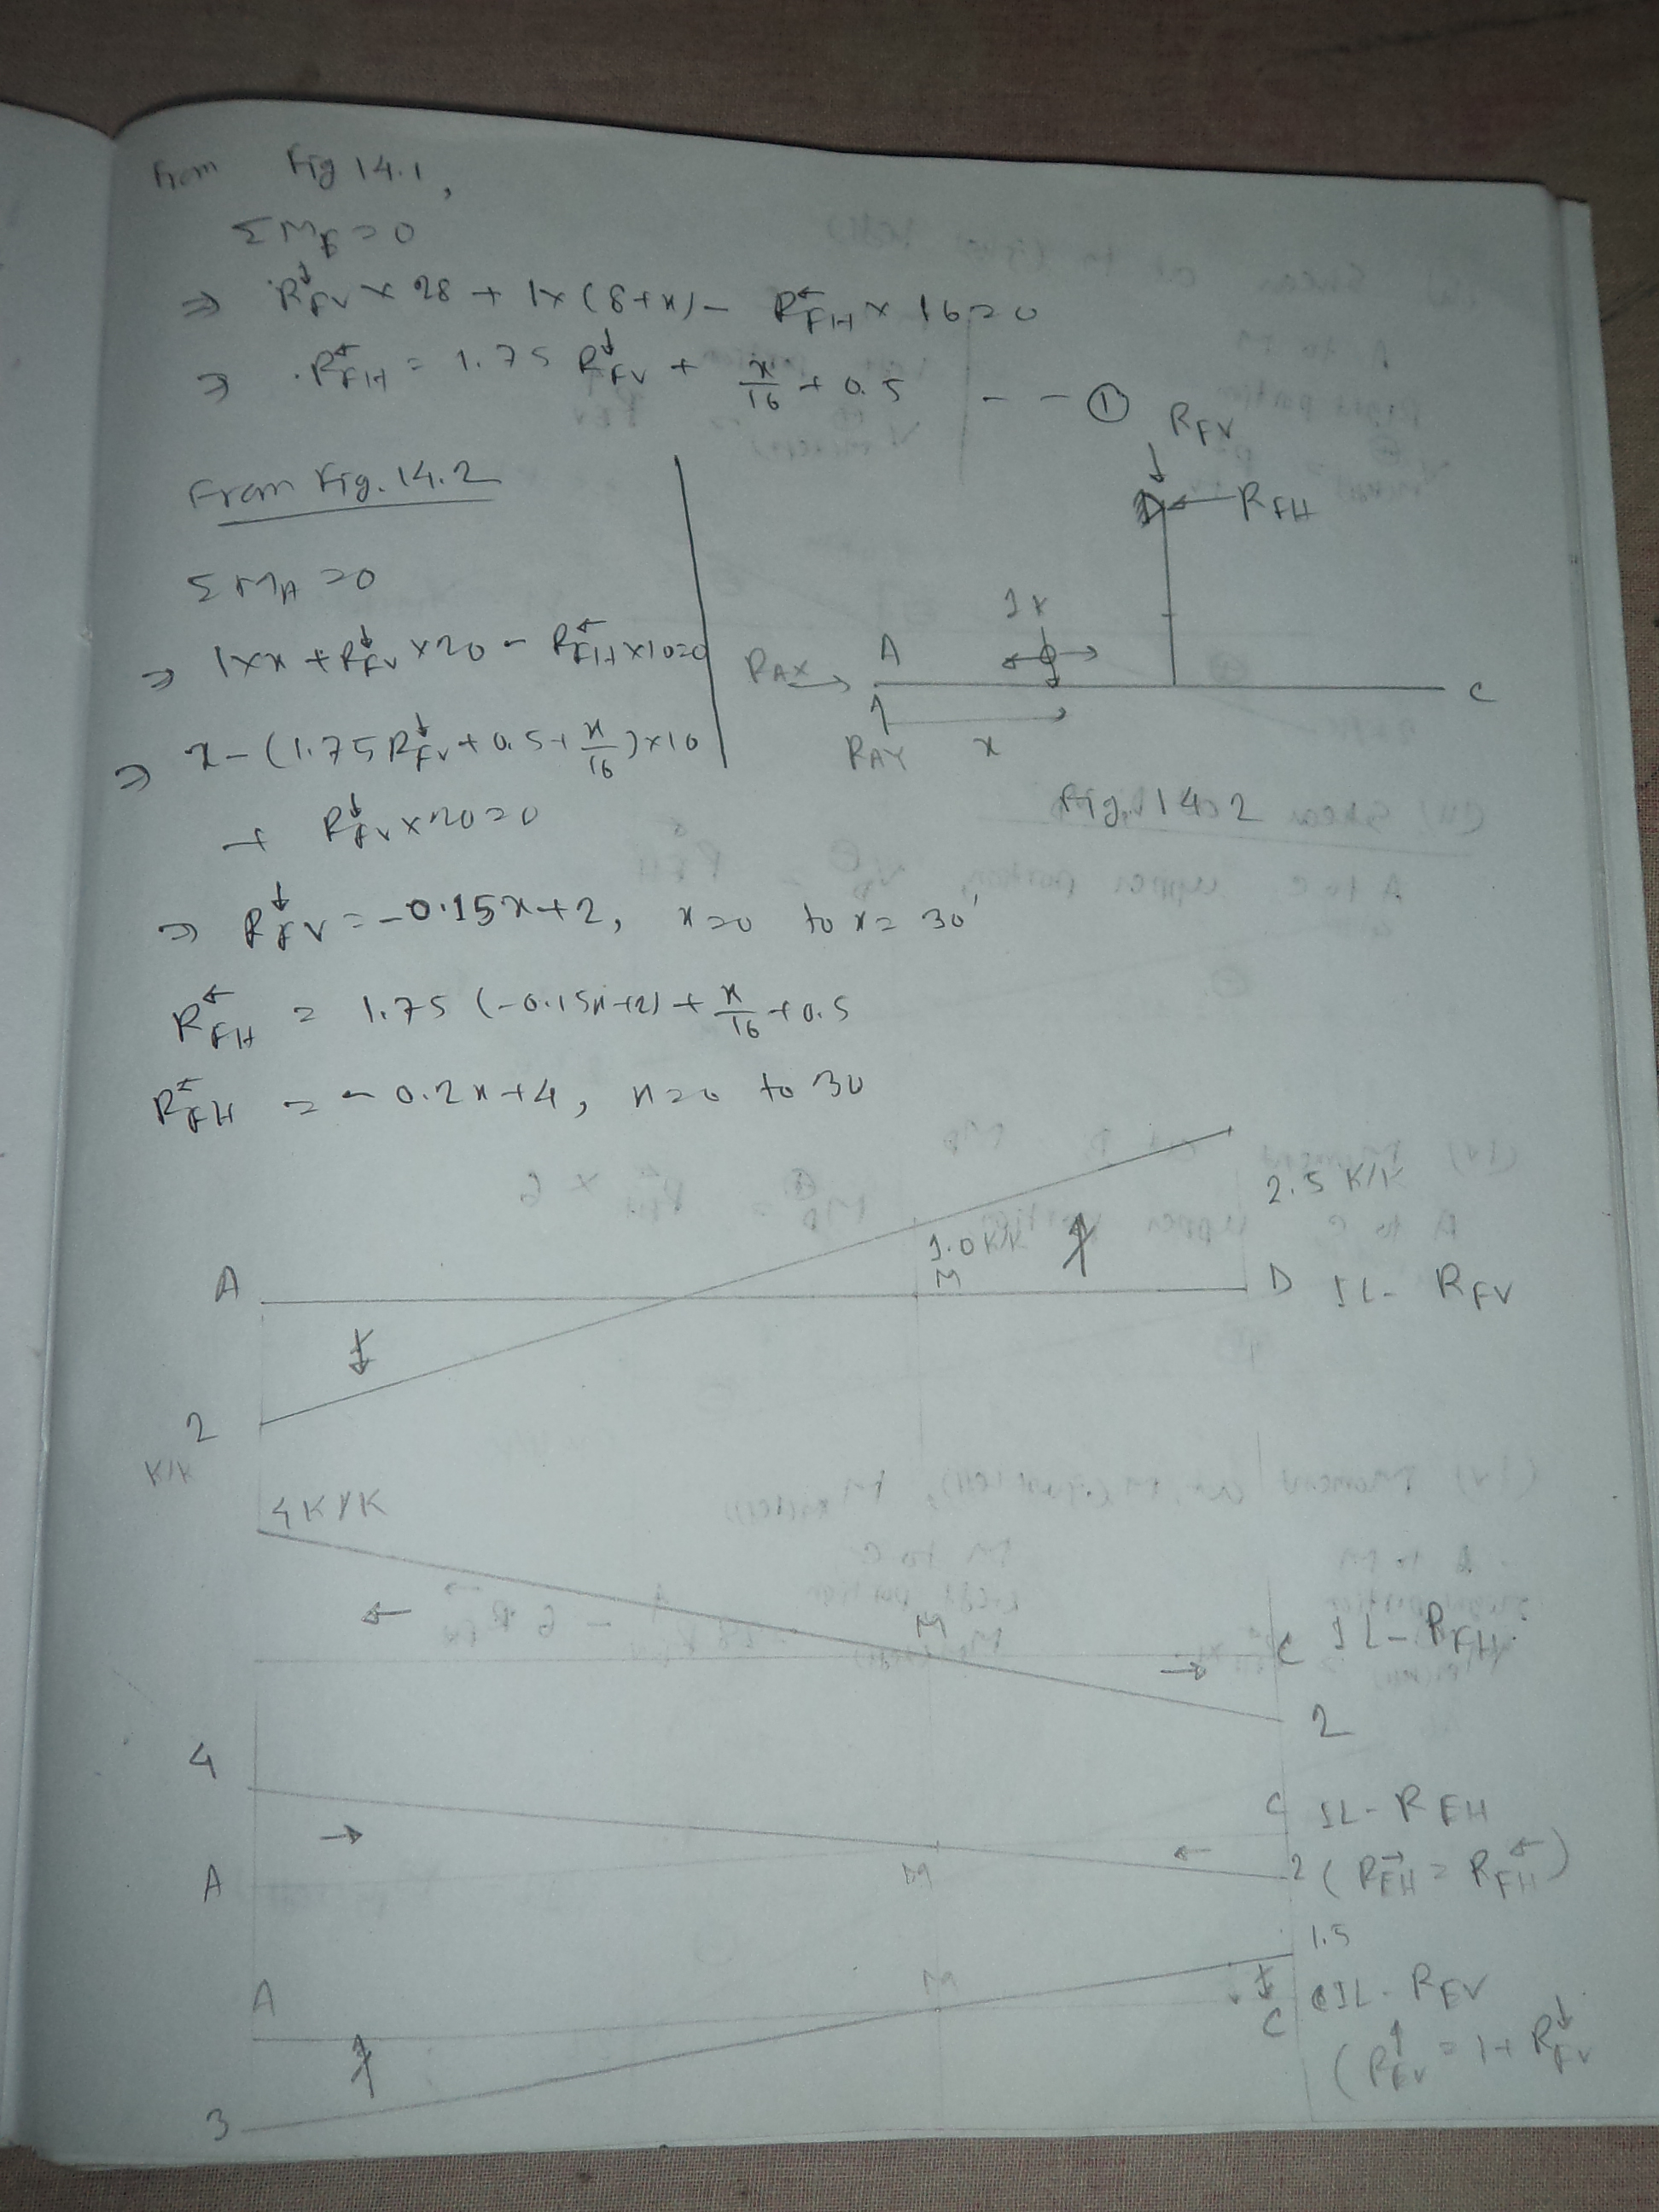 From Fig 14.1,
ΣM_E = 0
⇒ R_FV↓ × 28 + 1×(8+x) - R_FH← × 16 = 0
⇒ R_FH← = 1.75 R_FV↓ + x/16 + 0.5 --- ①
From Fig. 14.2
ΣM_A = 0
⇒ 1×x + R_FV↓ × 20 - R_FH← × 10 = 0
⇒ x - (1.75 R_FV↓ + 0.5 + x/16) × 10
+ R_FV↓ × 20 = 0
⇒ R_FV↓ = -0.15x + 2, x=0 to x = 30'
R_FH← = 1.75 (-0.15x+2) + x/16 + 0.5
R_FH← = -0.2x + 4, x=0 to 30
R_FV
R_FH
1K
R_AX
A
C
R_AY
x
Fig. 14.2
2.5 K/K
1.0 K/K
A
M
D IL- R_FV
2
K/K
4 K/K
M
C IL- R_FH
2
4
C IL- R_EH
A
M
2 (R_EH→ = R_FH←)
1.5
A
M
C
IL- R_EV
(R_EV↑ = 1 + R_FV↓
3